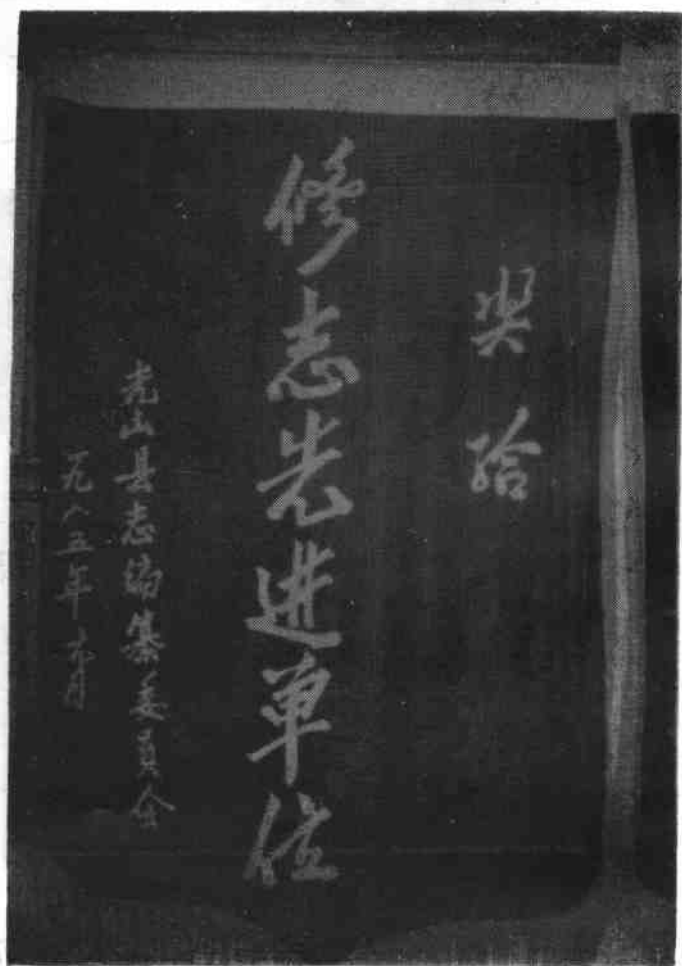 奖给
修志先进单位
光山县志编纂委员会
一九八五年六月